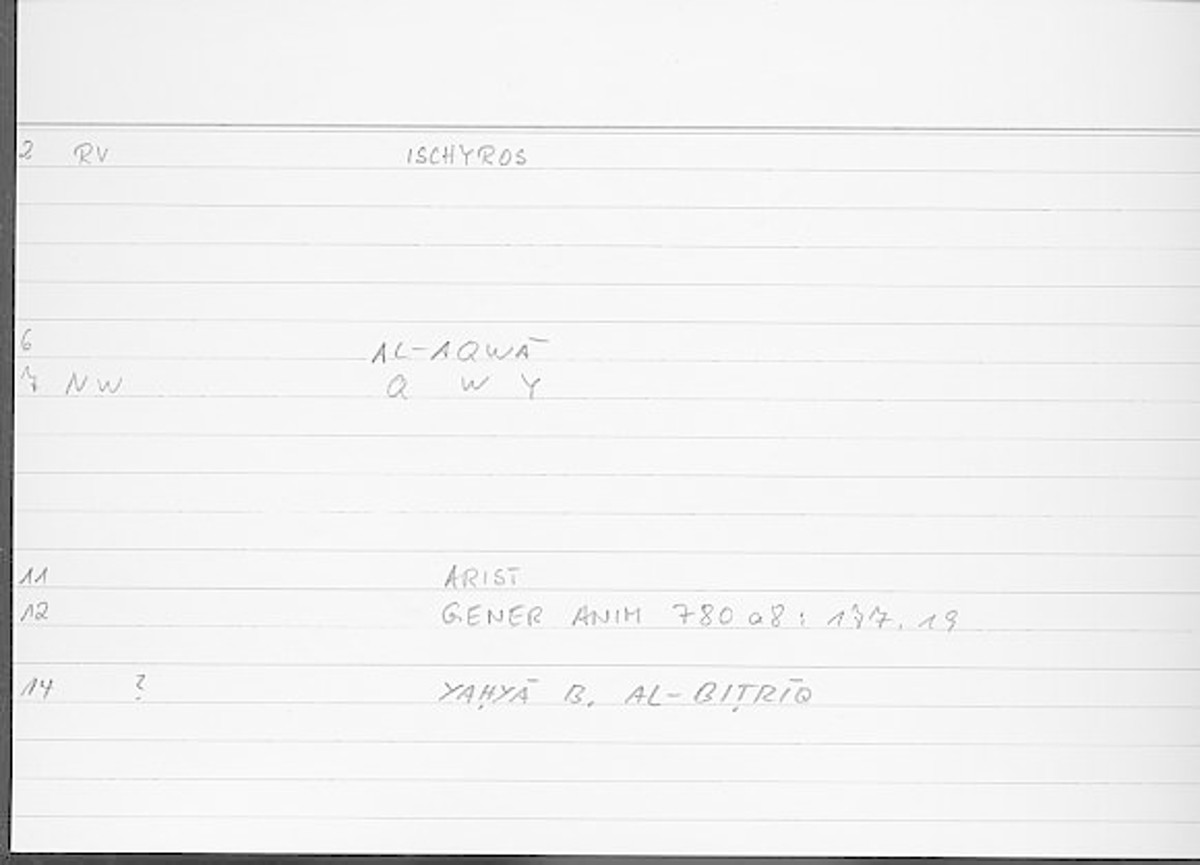 2 RV ISCHYROS
6 AL-AQWĀ
7 NW Q W Y
11 ARIST
12 GENER ANIM 780 a8 : 177. 19
14 ? YAḤYĀ B. AL-BIṬRĪQ